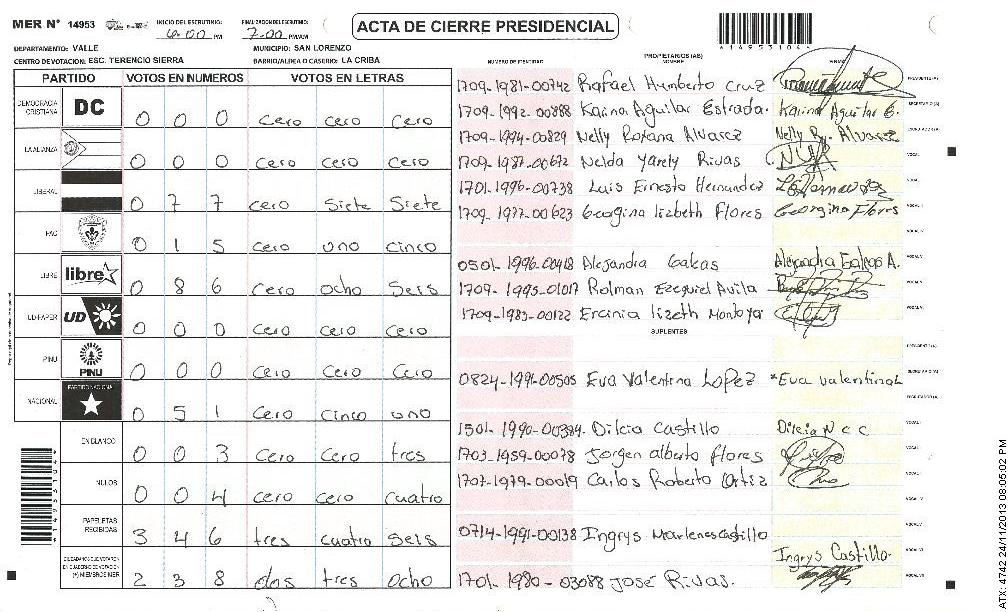 MER N° 14953
INICIO DEL ESCRUTINIO: 6:00 PM
FINALIZACION DEL ESCRUTINIO: 7:00 PM/AM
ACTA DE CIERRE PRESIDENCIAL
DEPARTAMENTO: VALLE
MUNICIPIO: SAN LORENZO
CENTRO DE VOTACION: ESC. TERENCIO SIERRA
BARRIO/ALDEA O CASERIO: LA CRIBA
PARTIDO VOTOS EN NUMEROS VOTOS EN LETRAS
DEMOCRACIA CRISTIANA DC 0 0 0 cero cero cero
LA ALIANZA 0 0 0 cero cero cero
LIBERAL 0 7 7 cero Siete Siete
PAC 0 1 5 cero uno cinco
LIBRE libre 0 8 6 cero ocho Seis
UD/FAPER UD 0 0 0 cero cero cero
PINU PINU 0 0 0 cero cero Cero
NACIONAL PARTIDO NACIONAL 0 5 1 cero Cinco uno
EN BLANCO 0 0 3 cero Cero tres
NULOS 0 0 4 cero cero cuatro
PAPELETAS RECIBIDAS 3 4 6 tres cuatro Seis
CIUDADANOS QUE VOTARON EN CUADERNO DE VOTACION (+) MIEMBROS MER 2 3 8 dos tres ocho
NUMERO DE IDENTIDAD
PROPIETARIOS (AS)
NOMBRE
FIRMA
1709-1981-00742 Rafael Humberto Cruz PRESIDENTE (A)
1709-1992-00888 Karina Aguilar Estrada. Karina Aguilar E. SECRETARIO (A)
1709-1994-00829 Nelly Roxana Alvarez Nelly R. Alvarez ESCRUTADOR (A)
1709-1987-00672 Nelda Yarely Rivas VOCAL I
1701-1996-00738 Luis Ernesto Hernandez
1709-1977-00623 Georgina lizbeth Flores Georgina Flores
0501-1996-00418 Alejandra Galeas Alejandra Galeas A.
1709-1995-01017 Rolman Ezequiel Avila
1709-1983-00122 Ercinia lizeth Montoya
SUPLENTES
PRESIDENTE (A)
0824-1991-00505 Eva Valentina Lopez Eva valentina L SECRETARIO (A)
ESCRUTADOR (A)
1501-1990-00384 Dilcia Castillo Dilcia N C C
1703-1959-00078 Jorgen alberto flores
1707-1979-00019 Carlos Roberto Ortiz
0714-1991-00138 Ingrys Marlenes castillo Ingrys Castillo.
1701-1980-03088 José Rivas.
ATX: 4742 24/11/2013 08:05:02 PM